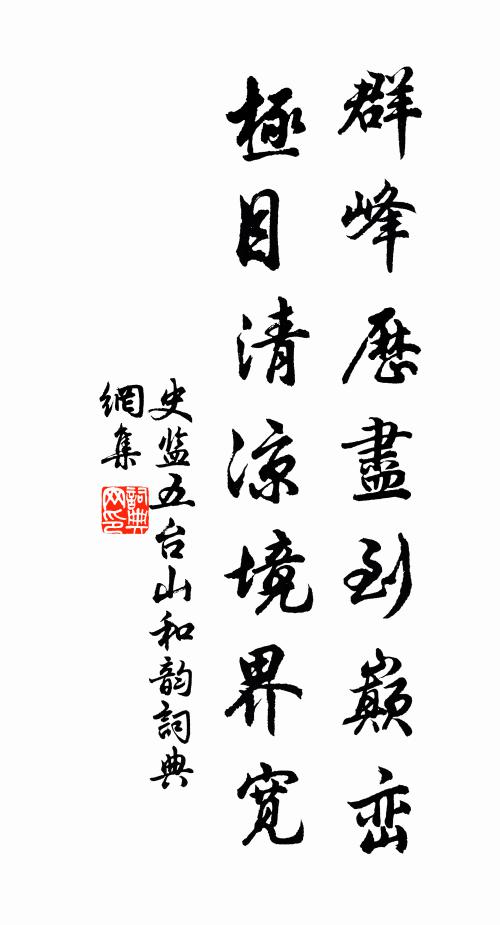 群峰歷盡到巔峦
極目清凉境界寬
史监五台山和韵詞典
網集
詞典
网印